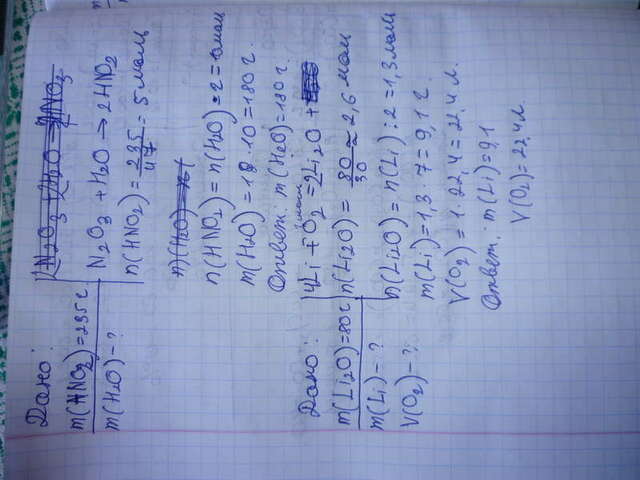 Дано:
m(HNO2)=235г
m(H2O)-?
N2O3 + H2O → 2HNO3
N2O3 + H2O → 2HNO2
n(HNO2) = 235/47 = 5 моль
n(H2O)=
n(HNO2) = n(H2O):2 = 10моль
m(H2O) = 18·10=180г.
Ответ: m(H2O)=180г.
Дано:
m(Li2O)=80г
m(Li)-?
V(O2)-?
4Li + O2 = 2Li2O +
n(Li2O) = 80/30 ≈ 2,6 моль
n(Li2O) = n(Li):2 = 1,3моль
m(Li)=1,3·7=9,1г.
V(O2) = 1·22,4=22,4л.
Ответ: m(Li)=9,1
V(O2)=22,4л.